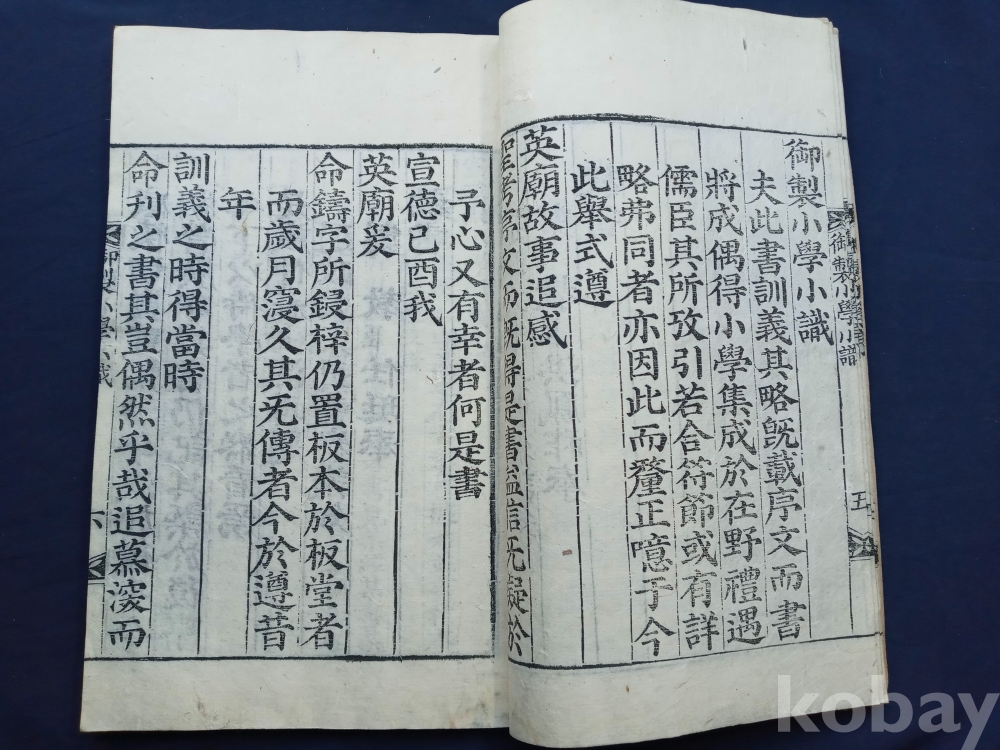 御製小學小識
夫此書訓義其略旣載序文而書
將成偶得小學集成於在野禮遇
儒臣其所攷引若合符節或有詳
略弗同者亦因此而釐正噫于今
此舉式遵
英廟故事追感
聖考序文而旣得是書益信无疑於
予心又有幸者何是書
宣德己酉我
英廟爰
命鑄字所鋟梓仍置板本於板堂者
而歲月寖久其无傳者今於遵昔
年
訓義之時得當時
命刊之書其豈偶然乎哉追慕深而
御製小學小識
五
御製小學小識
六
kobay